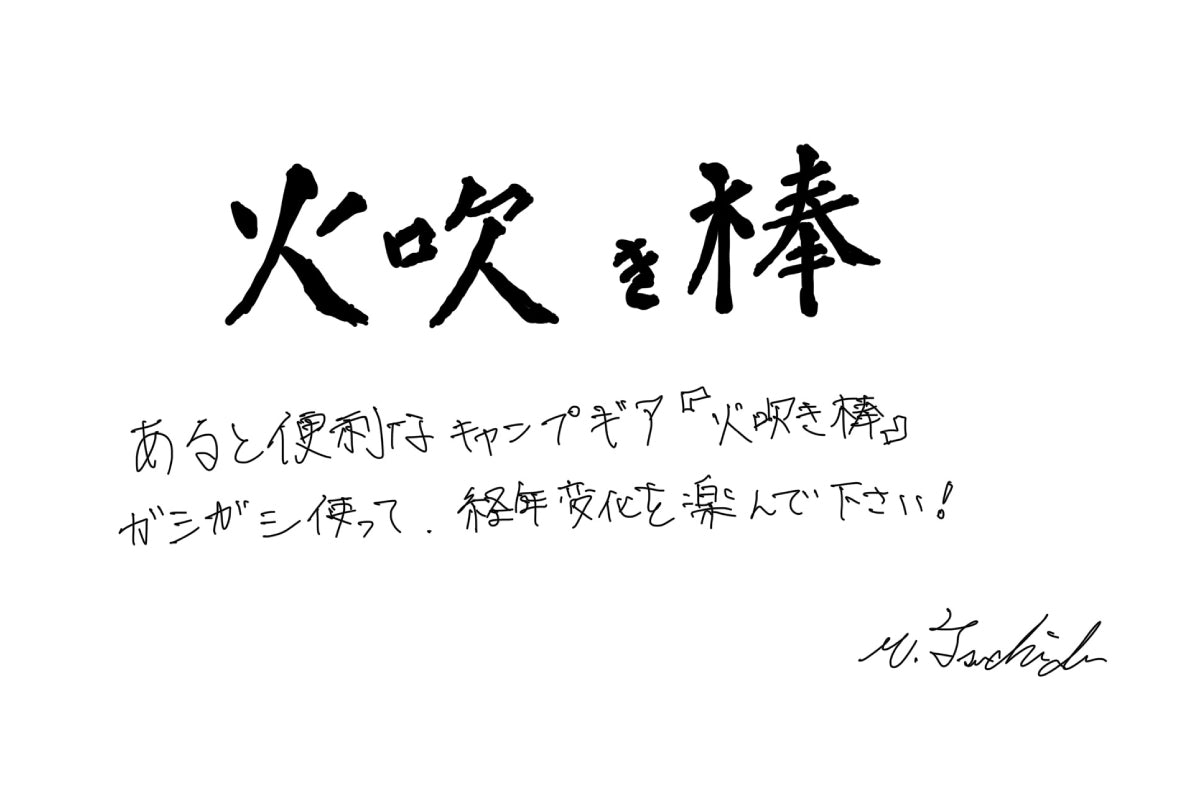 火吹き棒
あると便利なキャンプギア『火吹き棒』
ガシガシ使って.経年変化を楽んで下さい!